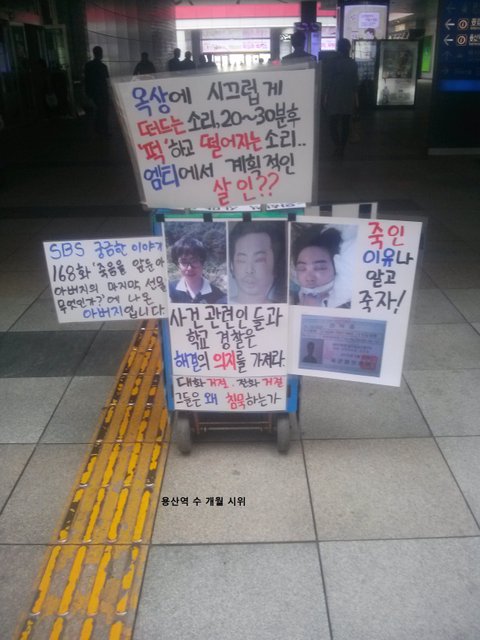 옥상에 시끄럽게
떠드는 소리, 20~30분후
'퍽'하고 떨어지는 소리..
엠티에서 계획적인
살인??
SBS 궁금한 이야기
168화 '죽음을 앞둔 아
아버지의 마지막 선물
무엇인가?'에 나온
아버지입니다
죽인
이유나
알고
죽자!
사건 관련인들과
학교 경찰은
해결의 의지를 가져라
대화거절. 전화 거절
그들은 왜 침묵하는가
용산역 수 개월 시위